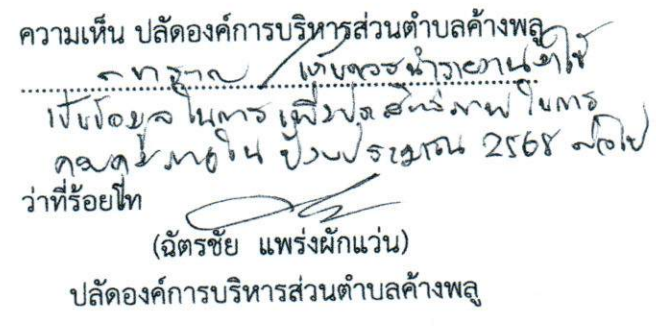 ความเห็น ปลัดองค์การบริหารส่วนตำบลค้างพลู
- ทราบ / เห็นควรนำรายงานฯใช้
เป็นข้อมูลในการเพิ่มประสิทธิภาพในการ
ควบคุมภายใน ปีงบประมาณ 2568 ต่อไป
ว่าที่ร้อยโท
(ฉัตรชัย แพร่งผักแว่น)
ปลัดองค์การบริหารส่วนตำบลค้างพลู